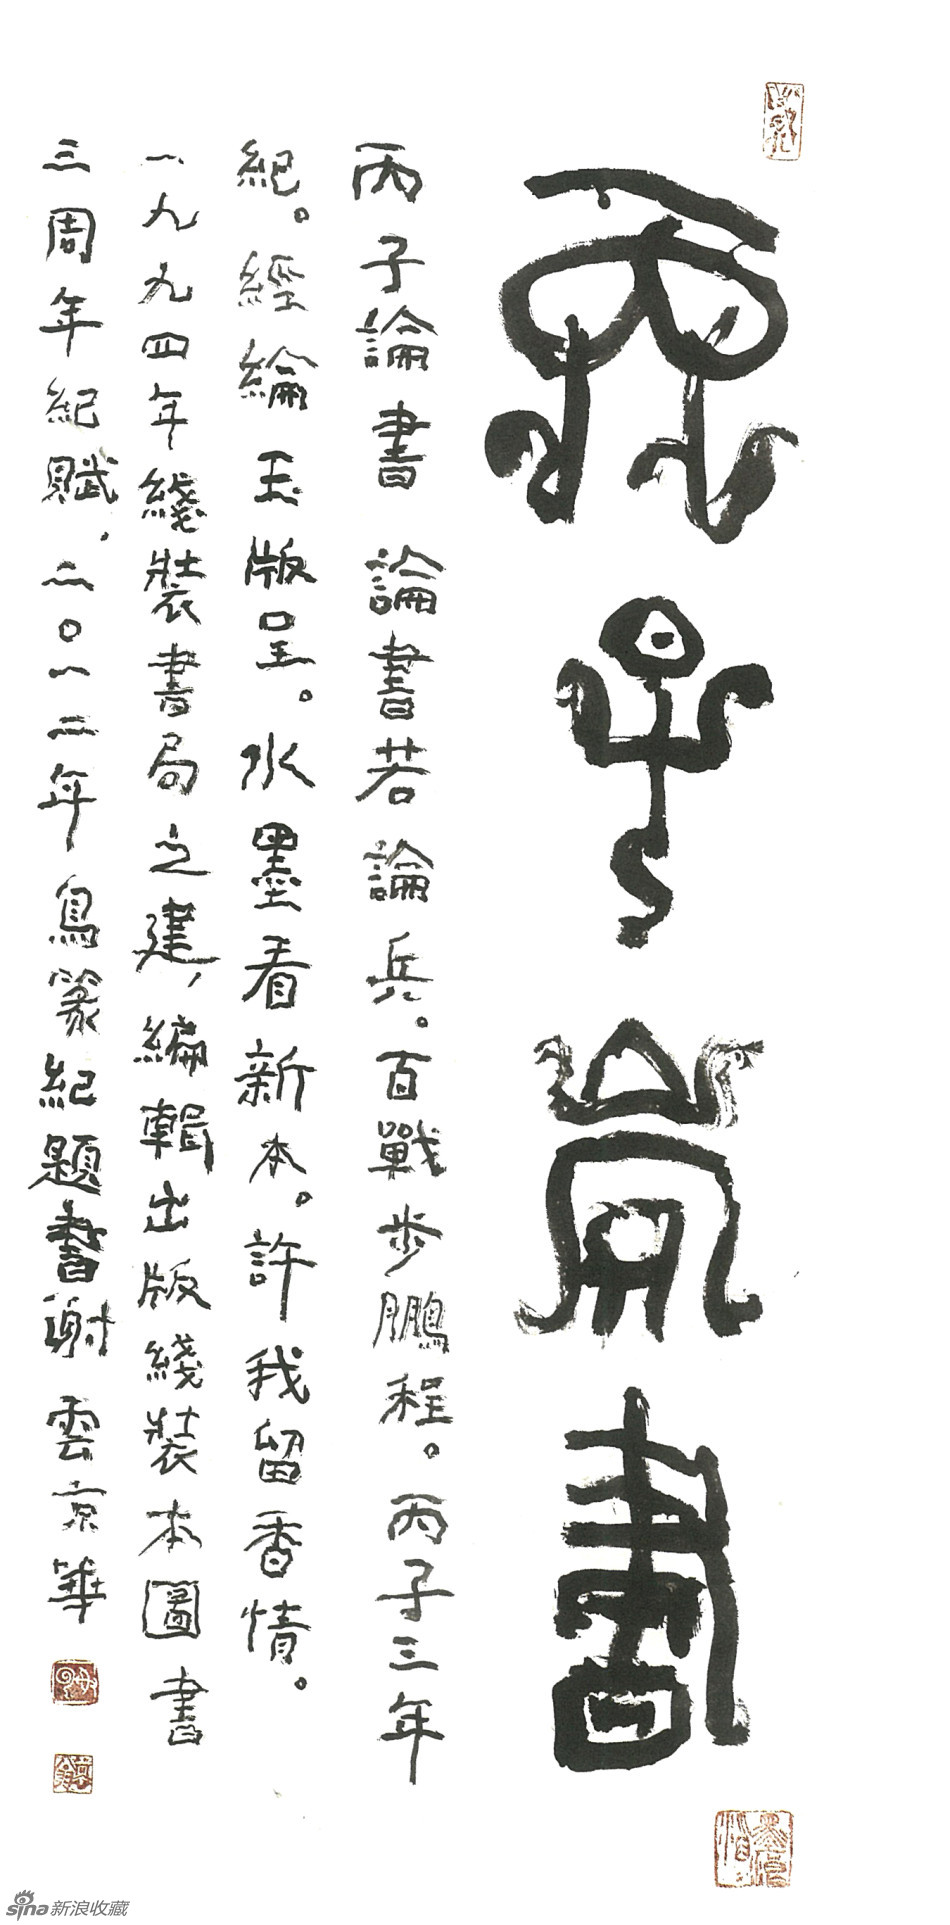 丙子論書
丙子論書 論書若論兵。百戰步鵬程。丙子三年
紀。經綸玉版呈。水墨看新本。許我留香情。
一九九四年綫裝書局之建，編輯出版綫裝本圖書
三周年紀賦，二〇一二年鳥篆紀題書謝雲京華
sina新浪收藏